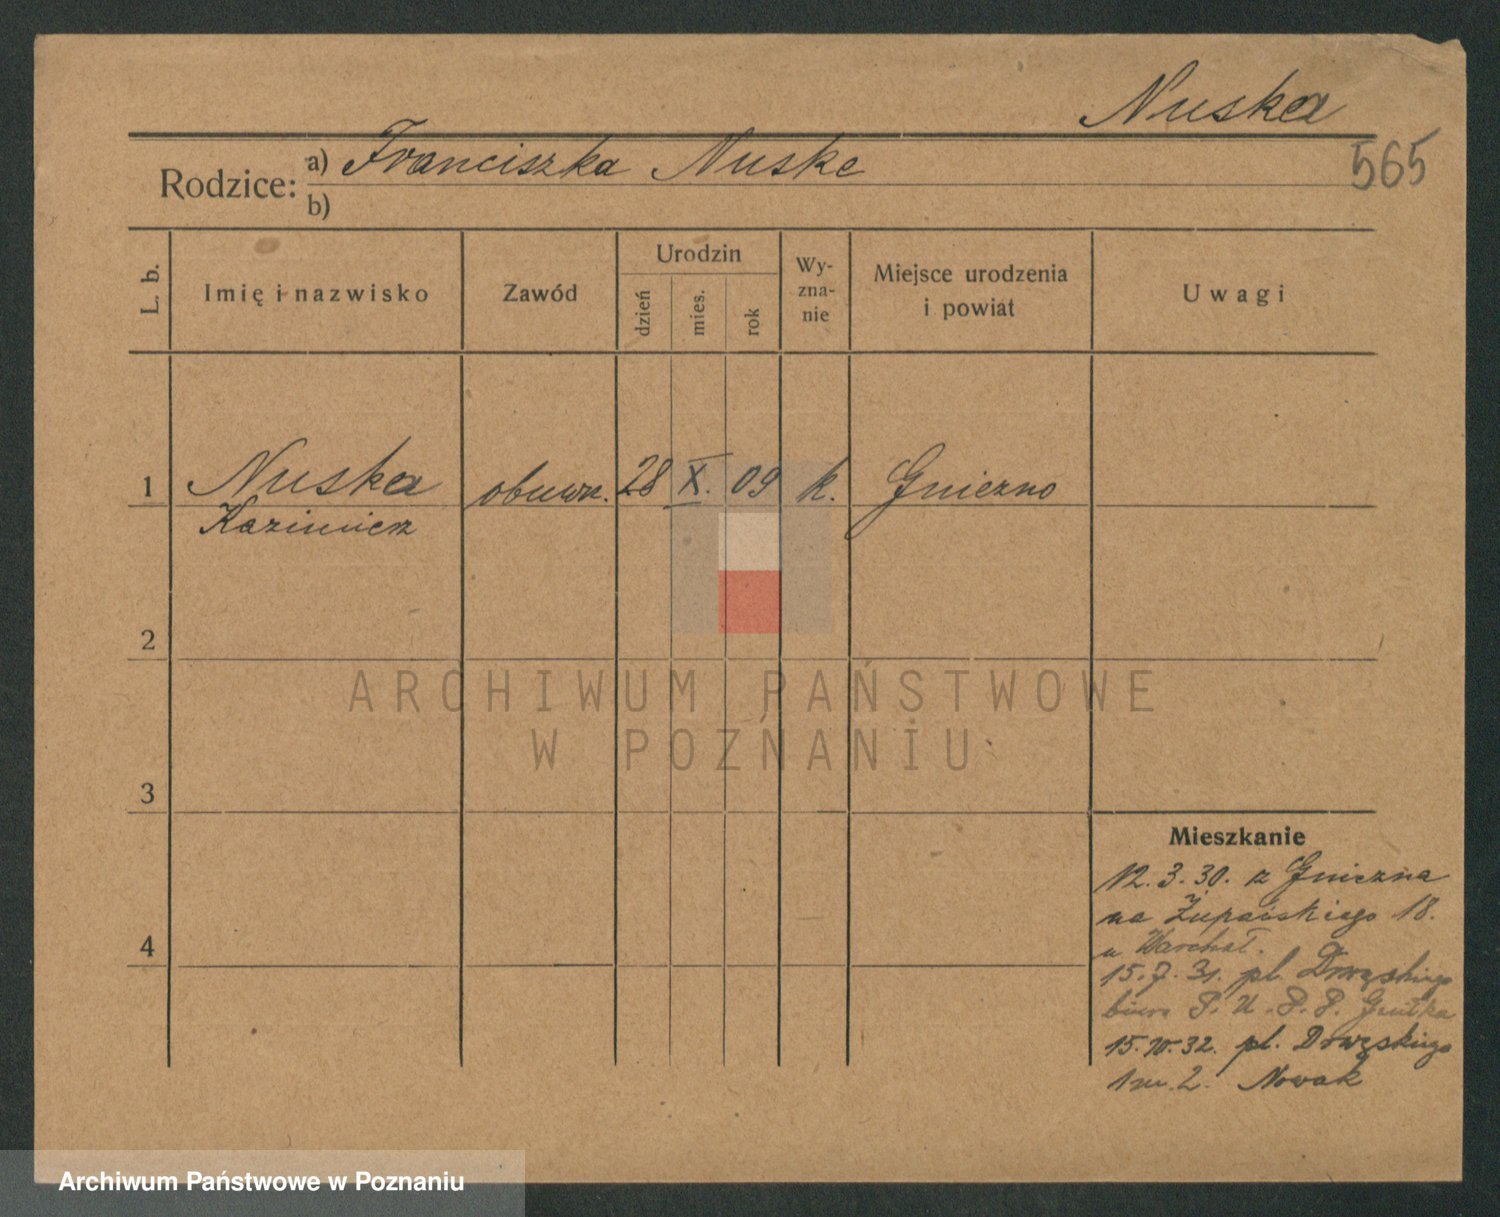 Nuska
565
Rodzice: a) Franciszka Nuske
b)
L. b. Imię i nazwisko Zawód Urodzin dzień mies. rok Wy-zna-nie Miejsce urodzenia i powiat Uwagi
1 Nuska obuwn. 28 X. 09 k. Gniezno
Kazimierz
2
3
4
ARCHIWUM PAŃSTWOWE
W POZNANIU
Mieszkanie
12. 3. 30. z Gniezna
na Żupańskiego 18.
u Warchał.
15. 7. 31. pl. Drwęskiego
biuro P. U. P. P.
15. 10. 32. pl. Drwęskiego
1 m. 2. Nowak
Archiwum Państwowe w Poznaniu